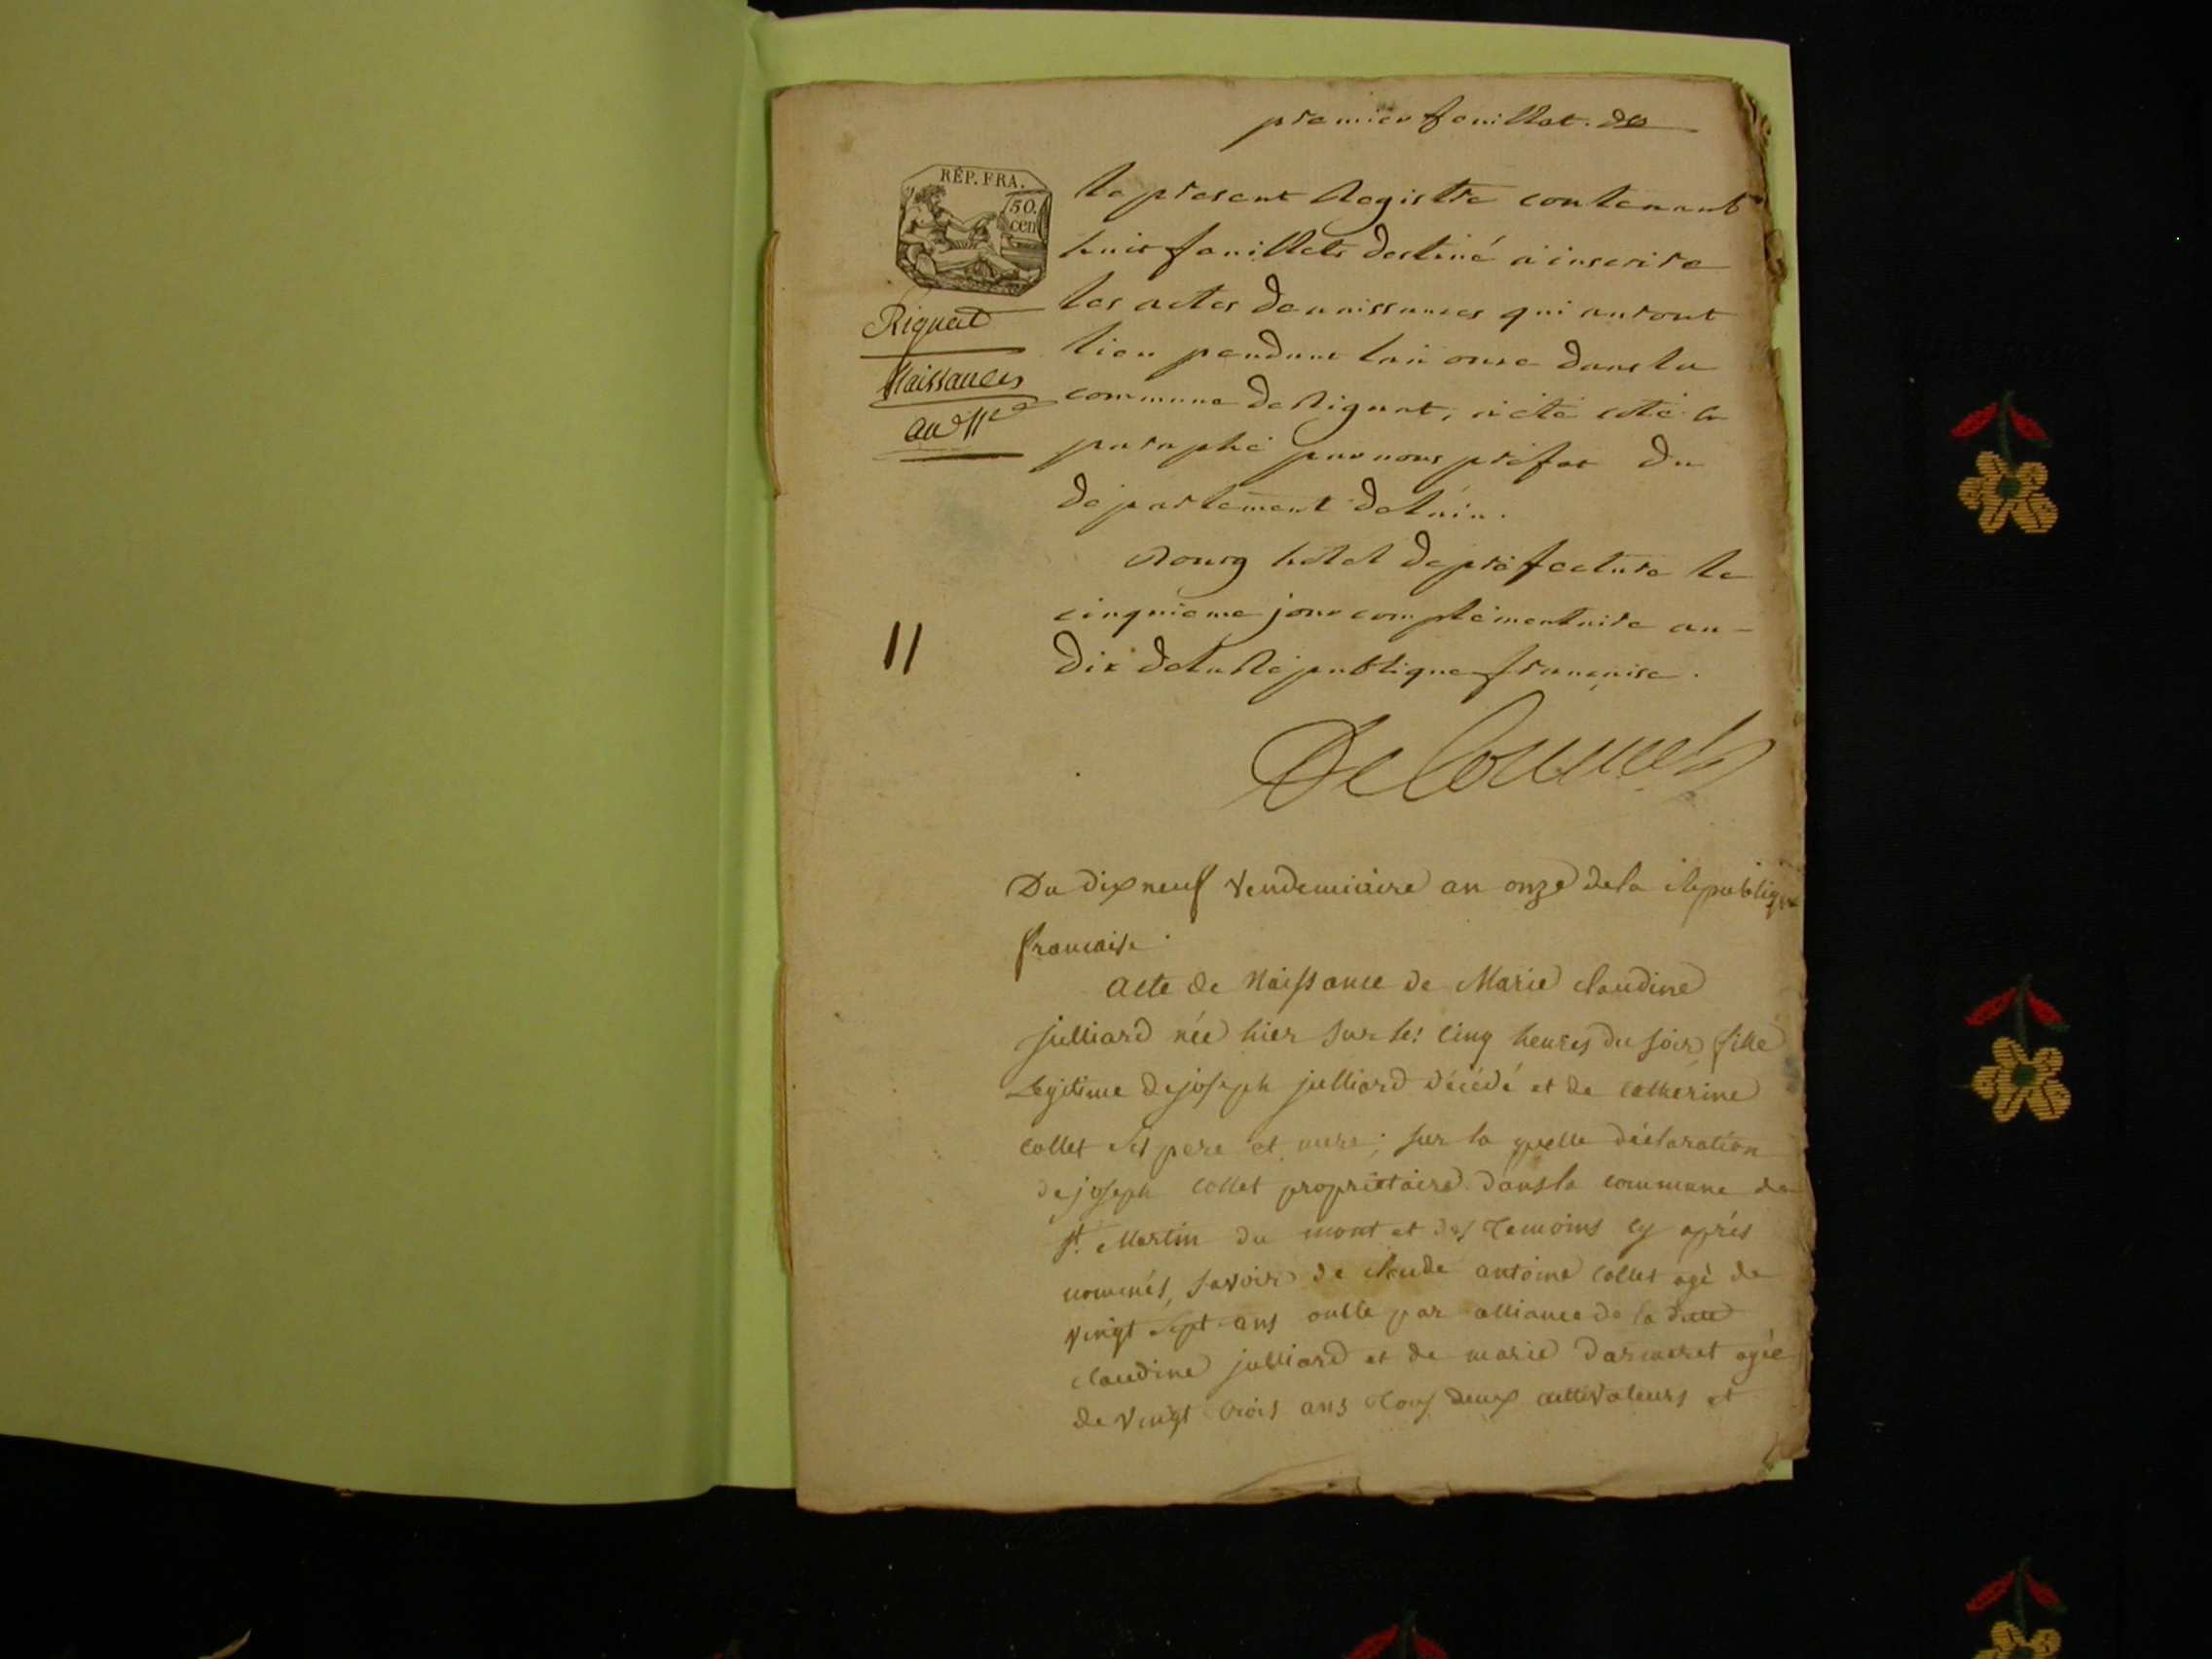 premier feuillet. D
RÉP. FRA.
50.
cen
Rignat
Naissances
an 11e
le present Registre contenant
huit feuillets destiné à inscrire
les actes de naissances qui auront
lieu pendant l'an onze dans la
commune de Rignat, à été coté et
paraphé par nous préfet du
département de l'ain.
Bourg hôtel de préfecture le
cinquieme jour complémentaire an
dix de la République française.
11
Du dix neuf Vendemiaire an onze de la Republique
francaise.
Acte de Naissance de Marie claudine
julliard née hier sur les cinq heures du soir fille
Legitime de joseph julliard décédé et de catherine
collet ses pere et mere; sur la quelle déclaration
de joseph collet propriétaire dans la commune de
st. Martin du mont et des temoins cy après
nommés, savoir de claude antoine collet agé de
vingt sept ans oncle par alliance de la dite
claudine julliard et de marie darmeret agée
de vingt trois ans tous deux cultivateurs et